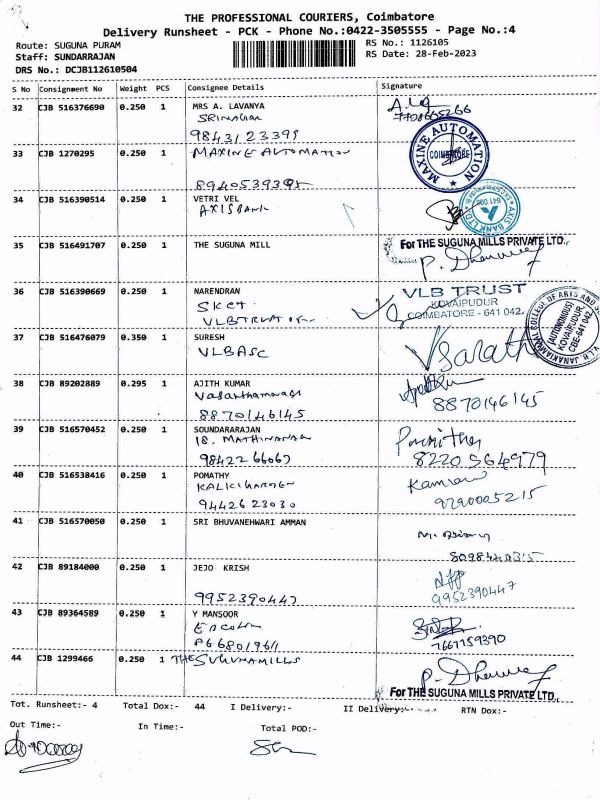 THE PROFESSIONAL COURIERS, Coimbatore
Delivery Runsheet - PCK - Phone No.:0422-3505555 - Page No.:4
Route: SUGUNA PURAM
RS No.: 1126105
Staff: SUNDARRAJAN
RS Date: 28-Feb-2023
DRS No.: DCJB112610504
S No Consignment No Weight PCS Consignee Details Signature
32 CJB 516376690 0.250 1 MRS A. LAVANYA
SRINAGAR
9843123395
33 CJB 1270295 0.250 1 MAXINE AUTOMATION
8940539395
MAXINE AUTOMATION
COIMBATORE
34 CJB 516390514 0.250 1 VETRI VEL
AXIS BANK
AXIS BANK LTD
35 CJB 516491707 0.250 1 THE SUGUNA MILL
For THE SUGUNA MILLS PRIVATE LTD.,
36 CJB 516390669 0.250 1 NARENDRAN
SKCT
VLB TRUST
VLB TRUST
KOVAIPUDUR
COIMBATORE - 641 042.
37 CJB 516476079 0.350 1 SURESH
VLBASC
V Sarath
(AUTONOMOUS)
KOVAIPUDUR
CBE-641 042
38 CJB 89202889 0.295 1 AJITH KUMAR
8870146145
8870146145
39 CJB 516570452 0.250 1 SOUNDARARAJAN
98422 66067
8220564979
40 CJB 516538416 0.250 1 POMATHY
94426 23030
9790005215
41 CJB 516570050 0.250 1 SRI BHUVANEHWARI AMMAN
42 CJB 89184000 0.250 1 JEJO KRISH
9952390447
9952390447
43 CJB 89364589 0.250 1 Y MANSOOR
7667159390
44 CJB 1299466 0.250 1 THE SUGUNA MILLS
For THE SUGUNA MILLS PRIVATE LTD.,
Tot. Runsheet:- 4 Total Dox:- 44 I Delivery:- II Delivery:- RTN Dox:-
Out Time:- In Time:- Total POD:-